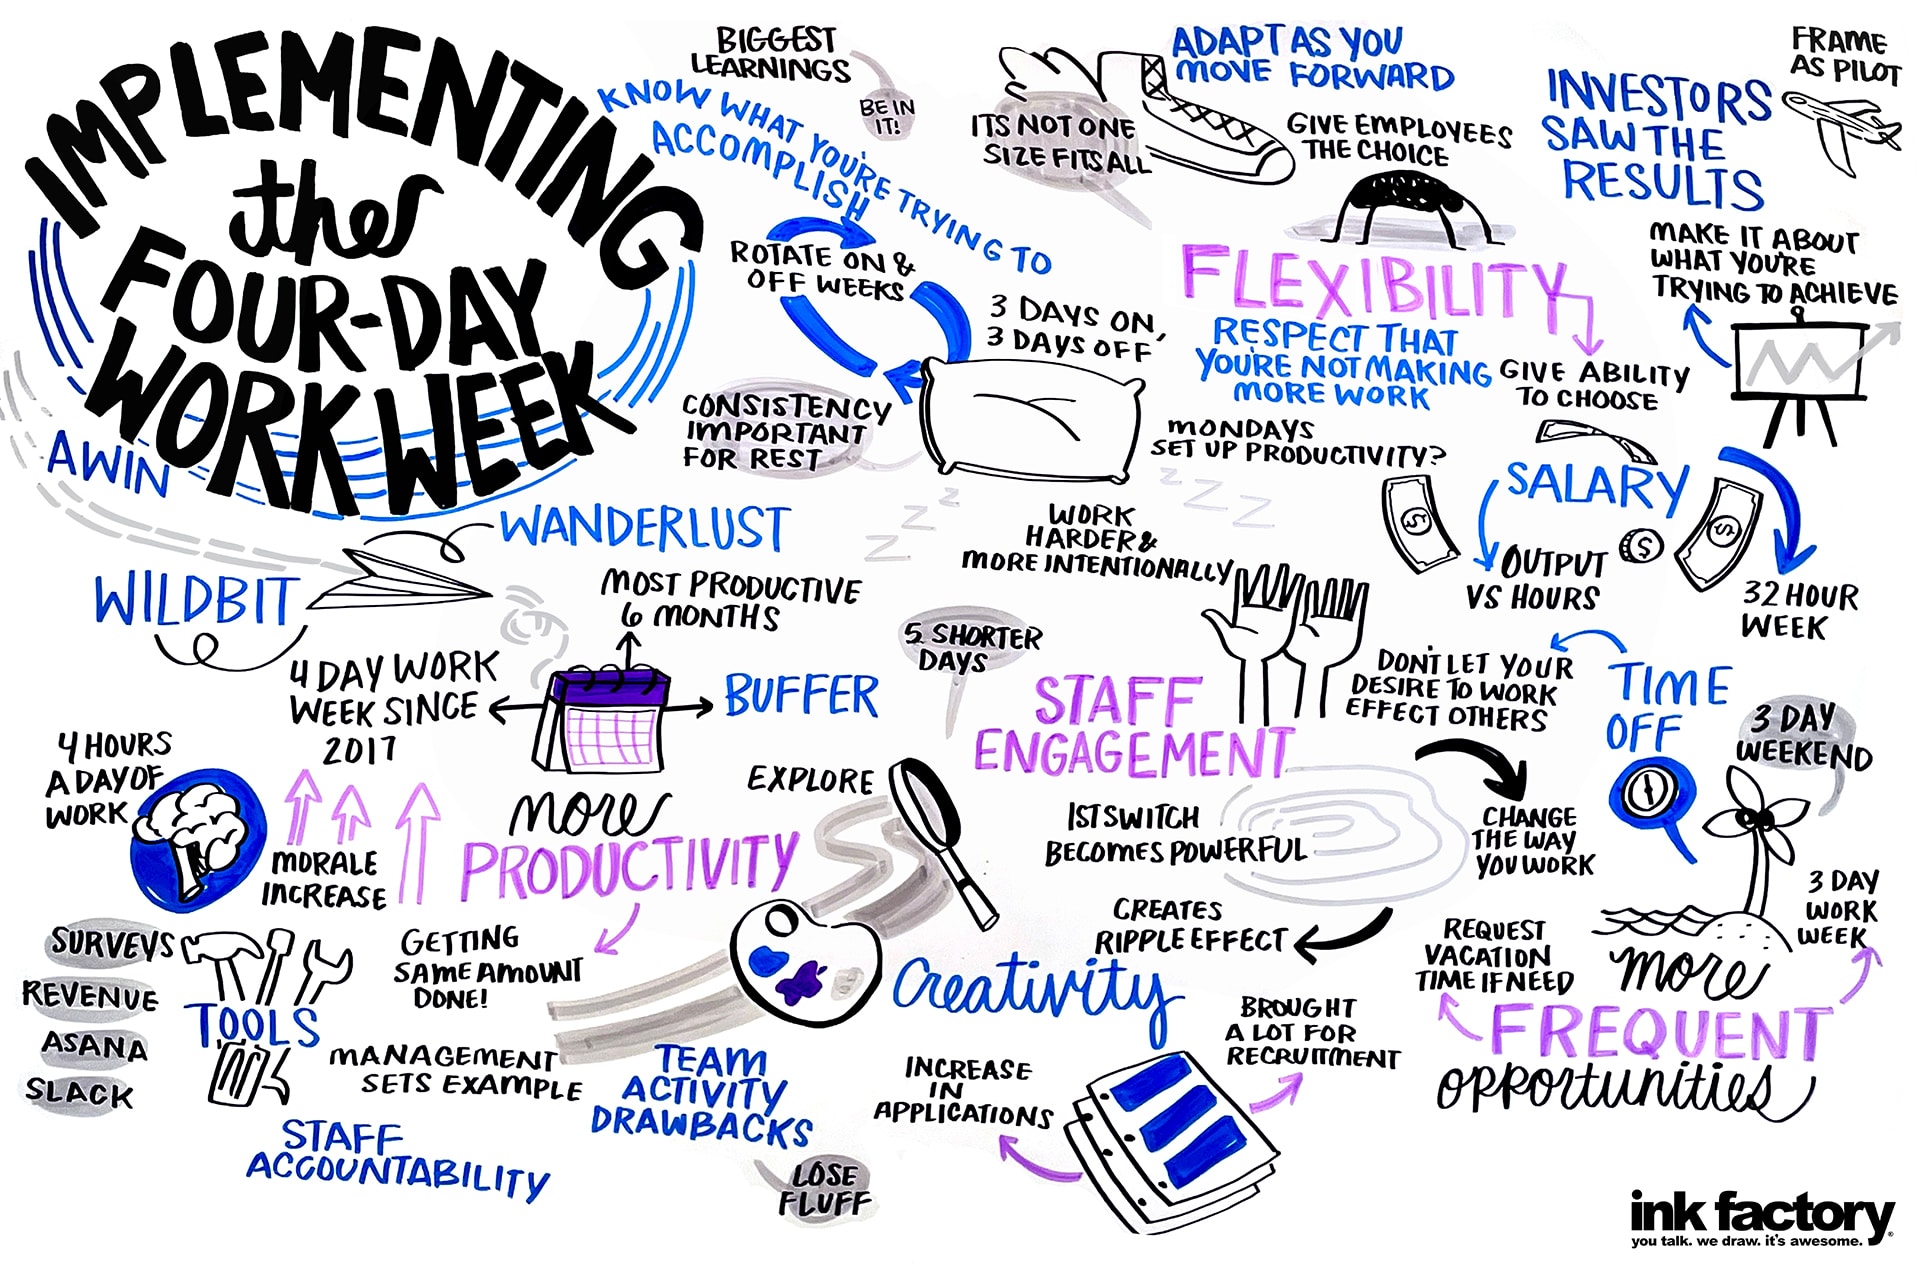 IMPLEMENTING
the
FOUR-DAY
WORK WEEK
AWIN
WANDERLUST
WILDBIT
BIGGEST
LEARNINGS
BE IN
IT!
KNOW WHAT YOU'RE TRYING TO
ACCOMPLISH
ROTATE ON &
OFF WEEKS
3 DAYS ON,
3 DAYS OFF
CONSISTENCY
IMPORTANT
FOR REST
ITS NOT ONE
SIZE FITS ALL
ADAPT AS YOU
MOVE FORWARD
GIVE EMPLOYEES
THE CHOICE
FLEXIBILITY
RESPECT THAT
YOU'RE NOT MAKING
MORE WORK
GIVE ABILITY
TO CHOOSE
MONDAYS
SET UP PRODUCTIVITY?
Z Z Z
Z Z Z
INVESTORS
SAW THE
RESULTS
FRAME
AS PILOT
MAKE IT ABOUT
WHAT YOU'RE
TRYING TO ACHIEVE
SALARY
$
$
$
OUTPUT
VS HOURS
32 HOUR
WEEK
WORK
HARDER &
MORE INTENTIONALLY
MOST PRODUCTIVE
6 MONTHS
4 DAY WORK
WEEK SINCE
2017
BUFFER
5 SHORTER
DAYS
STAFF
ENGAGEMENT
DON'T LET YOUR
DESIRE TO WORK
EFFECT OTHERS
TIME
OFF
3 DAY
WEEKEND
4 HOURS
A DAY OF
WORK
MORALE
INCREASE
more
PRODUCTIVITY
EXPLORE
1ST SWITCH
BECOMES POWERFUL
CHANGE
THE WAY
YOU WORK
CREATES
RIPPLE EFFECT
REQUEST
VACATION
TIME IF NEED
3 DAY
WORK
WEEK
more
FREQUENT
opportunities
SURVEYS
REVENUE
ASANA
SLACK
TOOLS
GETTING
SAME AMOUNT
DONE!
MANAGEMENT
SETS EXAMPLE
STAFF
ACCOUNTABILITY
TEAM
ACTIVITY
DRAWBACKS
LOSE
FLUFF
Creativity
INCREASE
IN
APPLICATIONS
BROUGHT
A LOT FOR
RECRUITMENT
ink factory
you talk. we draw. it's awesome.